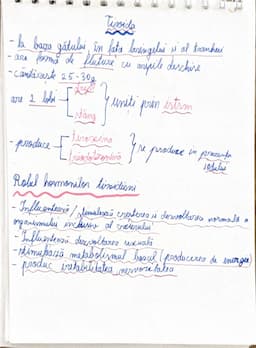 Tiroida
- la baza gâtului în fața laringelui și al traheei
- are formă de fluture cu aripile deschise
- cântărește 25-30g
are 2 lobi drept stâng uniți prin istm
- produce tiroxina triiodotironină se produce în prezența iodului
Rolul hormonilor tiroidieni
- Influențează / creșterea și dezvoltarea normală a
organismului inclusiv al creierului
- Influențează dezvoltarea sexuală
- stimulează metabolismul bazal (producerea de energie)
- produc instabilitatea nervozitatea